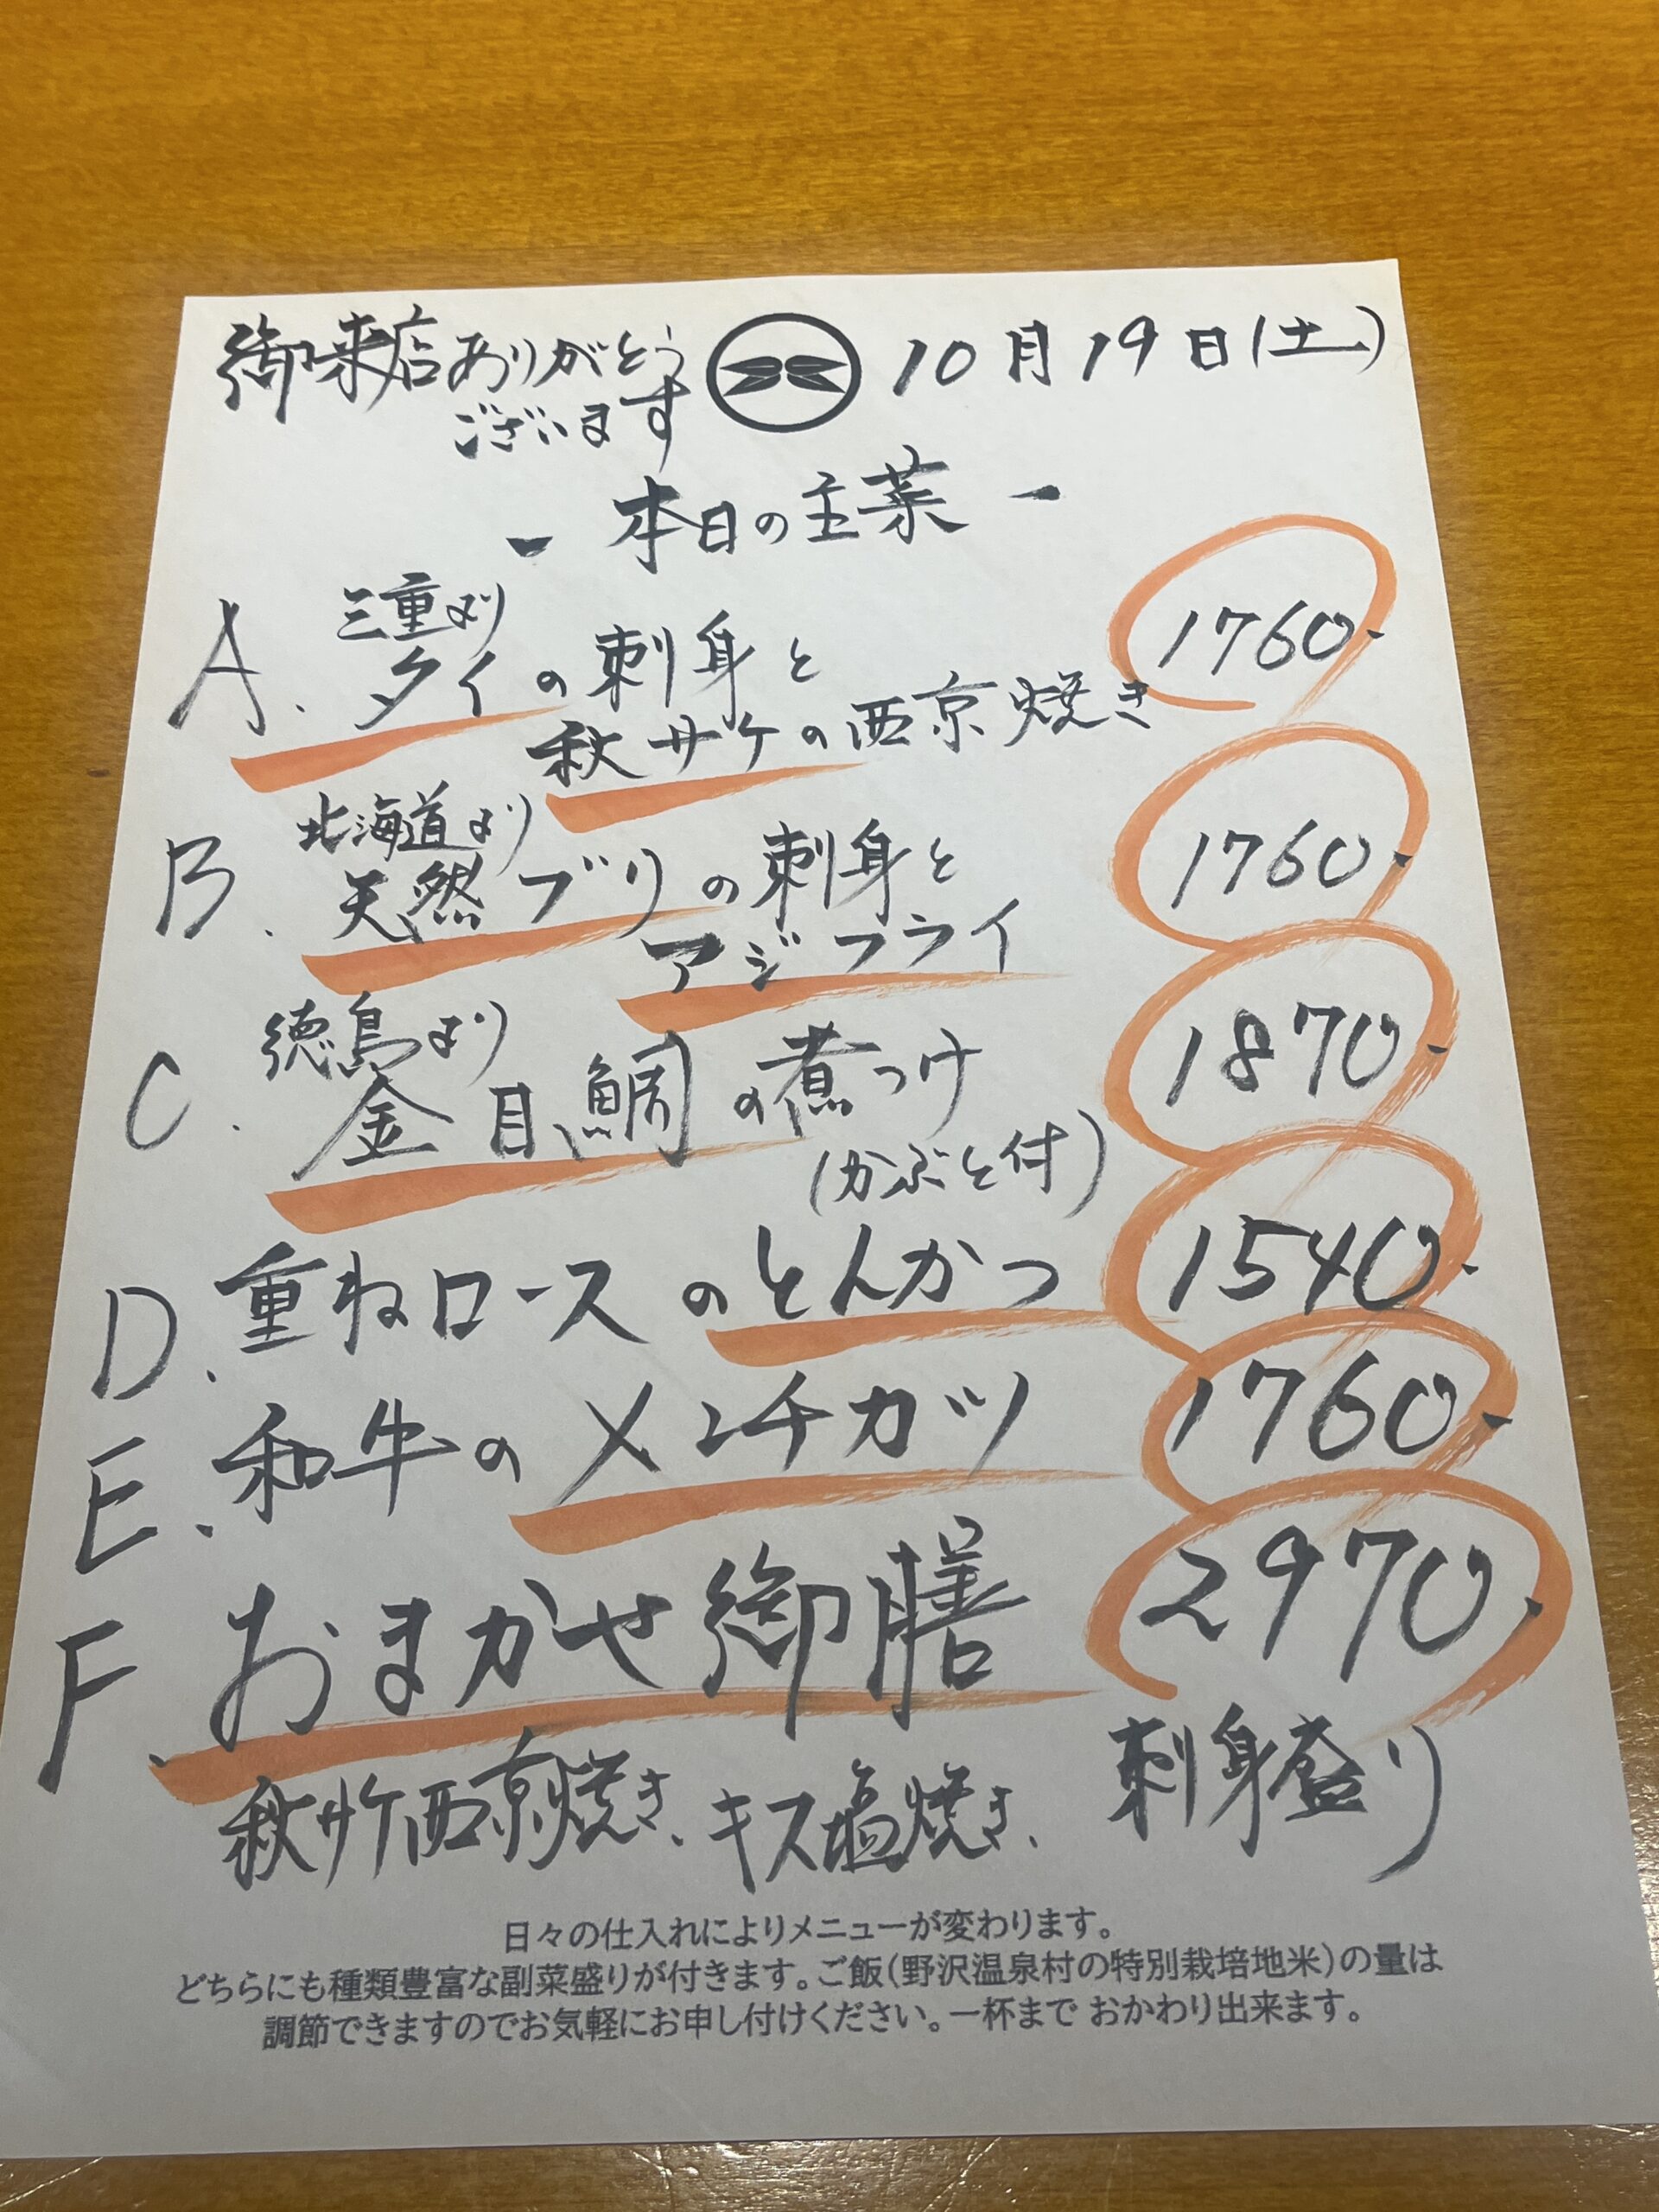 御来店ありがとう
ございます
10月19日(土)
- 本日の主菜 -
三重より
A. タイの刺身と
秋サケの西京焼き
1760-
北海道より
B. 天然ブリの刺身と
アジフライ
1760-
徳島より
C. 金目鯛の煮つけ
(かぶと付)
1870-
D. 重ねロースのとんかつ 1540-
E. 和牛のメンチカツ 1760-
F. おまかせ御膳 2970-
秋サケ西京焼き、キス塩焼き、刺身盛り
日々の仕入れによりメニューが変わります。
どちらにも種類豊富な副菜盛りが付きます。ご飯(野沢温泉村の特別栽培地米)の量は
調節できますのでお気軽にお申し付けください。一杯まで おかわり出来ます。